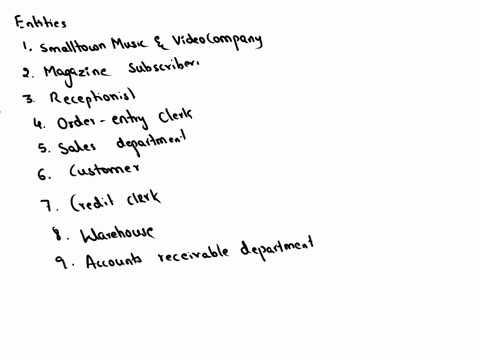 Entities
1. Smalltown Music & Video Company
2. Magazine Subscriber.
3. Receptionist
4. Order-entry Clerk
5. Sales department
6. Customer
7. Credit clerk
8. Warehouse
9. Accounts receivable department